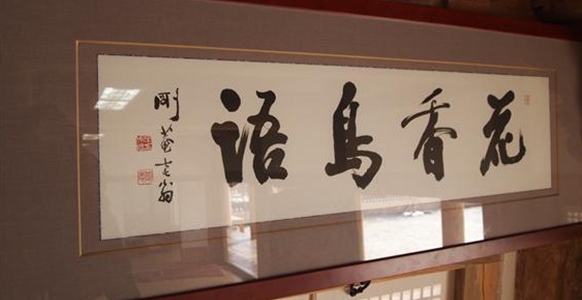 花香鳥語
剛菴老翁